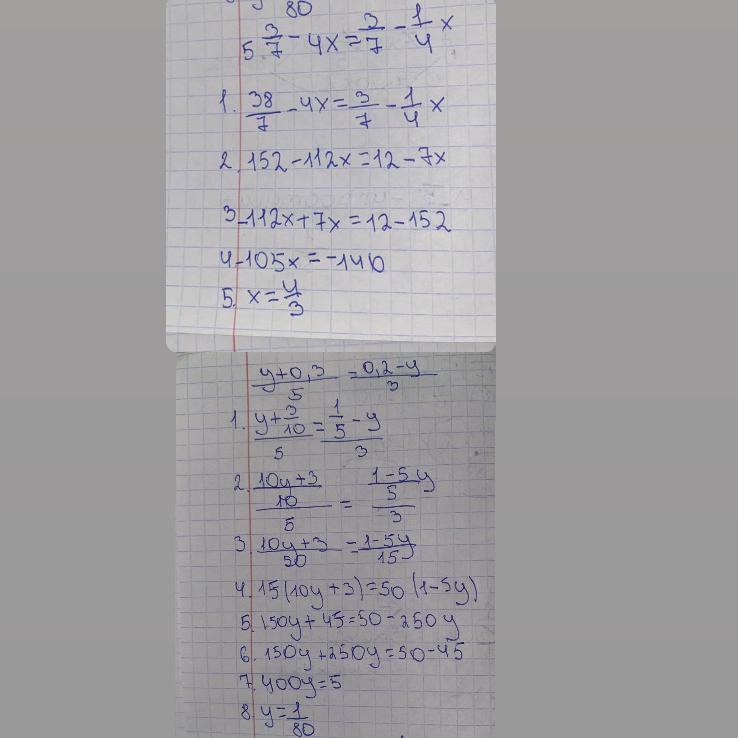 80
5 3/7 - 4x = 3/7 - 1/4 x
1. 38/7 - 4x = 3/7 - 1/4 x
2. 152 - 112x = 12 - 7x
3 -112x + 7x = 12 - 152
4 -105x = -140
5. x = 4/3
y+0,3/5 = 0,2-y/3
1. y+3/10/5 = 1/5-y/3
2. 10y+3/10/5 = 1-5y/5/3
3. 10y+3/50 = 1-5y/15
4. 15(10y+3) = 50(1-5y)
5. 150y+45=50-250y
6. 150y+250y=50-45
7. 400y=5
8. y=1/80